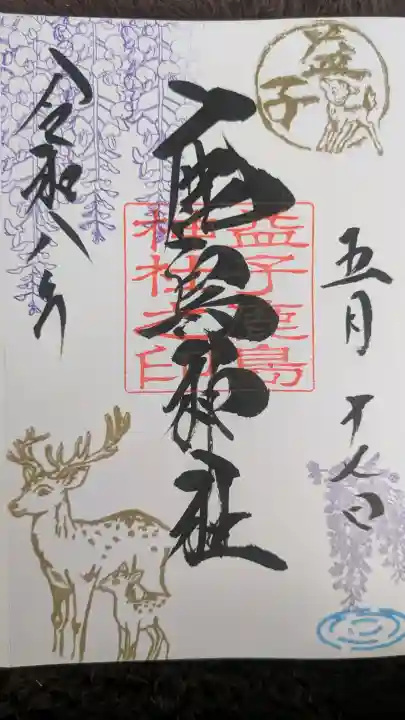 益子
五月十八日
鹿島神社
益子鹿島
神社之印
令和八年